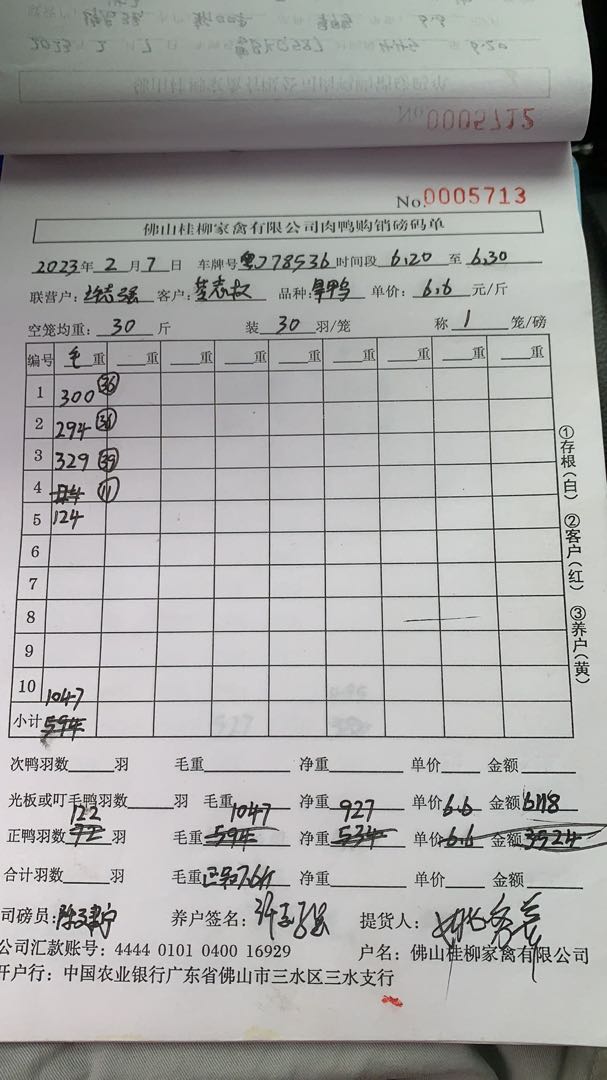 No.0005712
No.0005713
佛山桂柳家禽有限公司肉鸭购销磅码单
2023年2月7日 车牌号粤J78536时间段6.20至6.30
联营户: 强 客户: 志叔 品种: 旱鸭 单价: 6.6元/斤
空笼均重: 30斤 装30羽/笼 称1笼/磅
编号 毛重 重 重 重 重 重 重 重
1 300 36
2 294 36
3 329 39
4 11
5 124
6
7
8
9
10 1047
小计 594
①存根(白) ②客户(红) ③养户(黄)
次鸭羽数 羽 毛重 净重 单价 金额
光板或叮毛鸭羽数 羽 毛重 净重 单价 金额
122 1047 927 6.6 6118
正鸭羽数92羽 毛重594 净重534 单价6.6 金额3524
合计羽数 羽 毛重 净重 单价 金额
司磅员: 养户签名: 提货人:
公司汇款账号: 4444 0101 0400 16929 户名: 佛山桂柳家禽有限公司
开户行: 中国农业银行广东省佛山市三水区三水支行